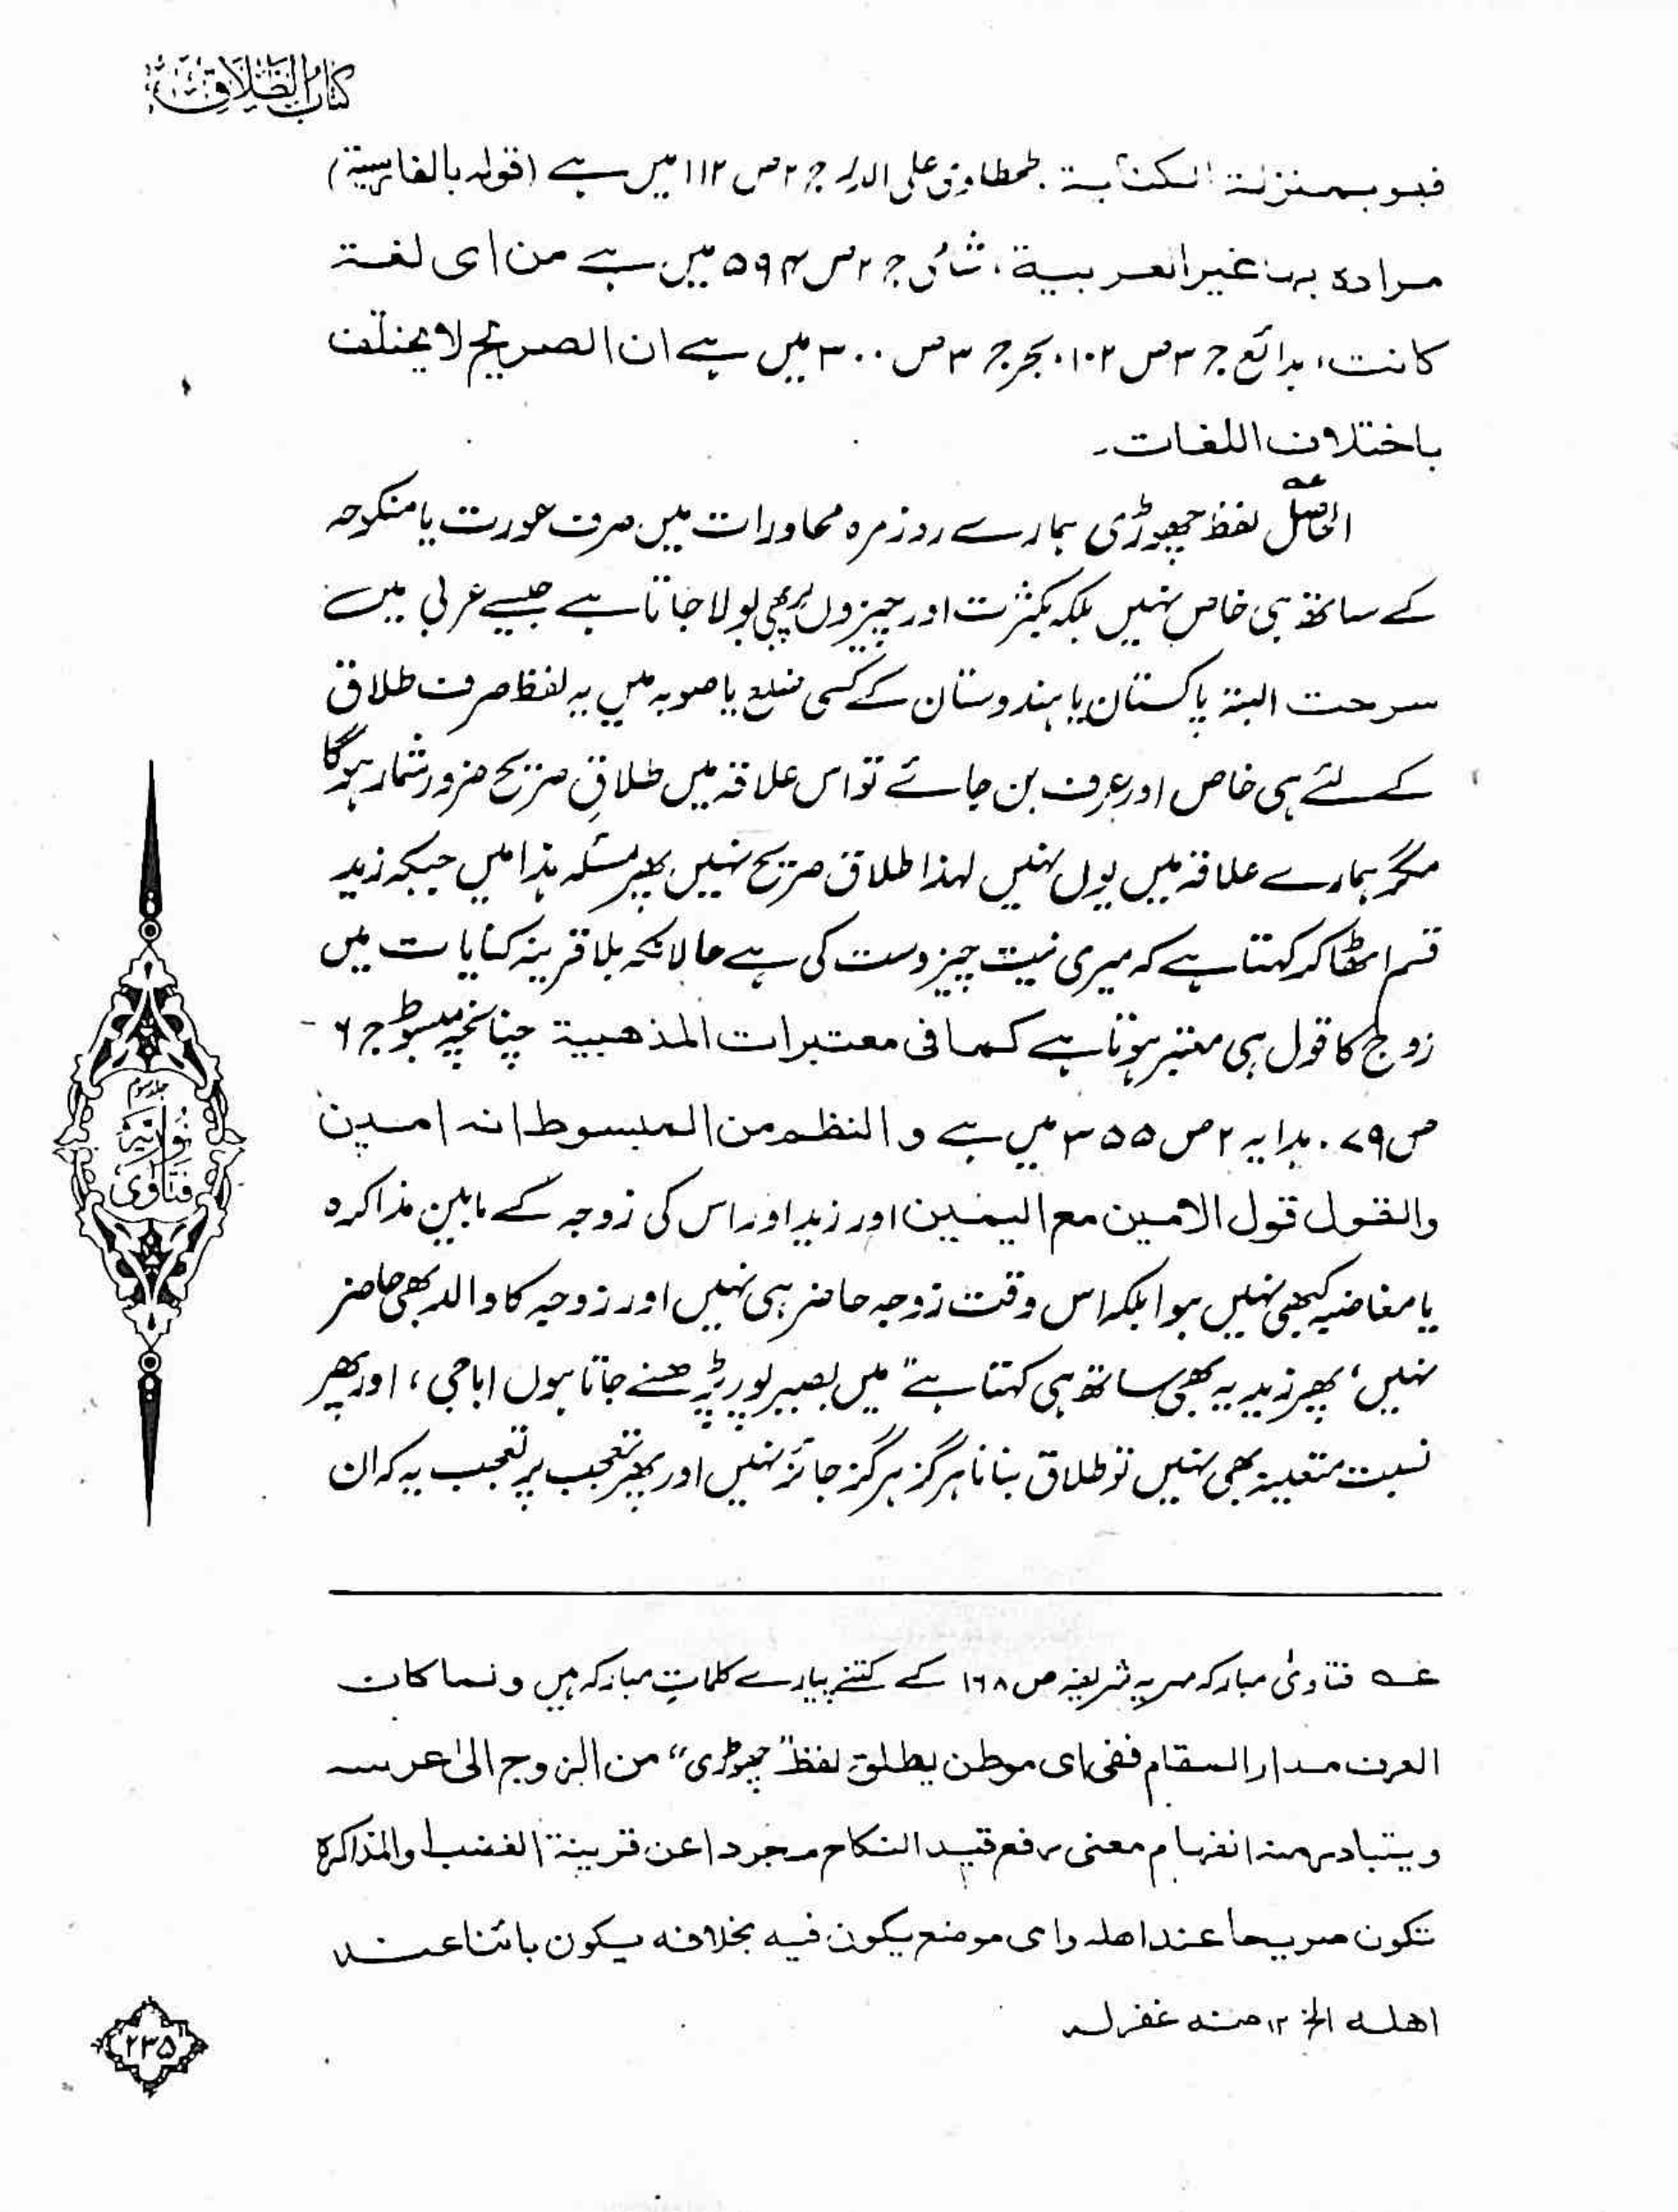 کتاب الطلاق
فهو بمنزلة الكناية. طحطاوی علی الدر ج ۲ ص ۱۱۲ میں ہے (قوله بالفارسية)
مراده بها غير العربية، شامی ج ۲ ص ۵۹۴ میں ہے من ای لغة
كانت، بدائع ج ۳ ص ۱۰۲، بحر ج ۳ ص ۳۰۰ میں ہے ان الصريح لا يختلف
باختلاف اللغات۔
الحاصل عہ لفظ چھوڑی ہمارے روزمرہ محاورات میں صرف عورت یا منکوحہ
کے ساتھ ہی خاص نہیں بلکہ بکثرت اور چیزوں پر بھی بولا جاتا ہے جیسے عربی میں
سرحت البتہ پاکستان یا ہندوستان کے کسی ضلع یا صوبہ میں یہ لفظ صرف طلاق
کے لئے ہی خاص اور عرف بن جائے تو اس علاقہ میں طلاقِ صریح ضرور شمار ہوگا
مگر ہمارے علاقہ میں یوں نہیں لہذا طلاق صریح نہیں پھر مسئلہ ہذا میں جبکہ زید
قسم اٹھا کر کہتا ہے کہ میری نیت چیز دست کی ہے حالانکہ بلا قرینہ کنایات میں
زوج کا قول ہی معتبر ہوتا ہے کما فی معتبرات المذهبية چنانچہ مبسوط ج ۶
ص ۷۹، ہدایہ ۲ ص ۳۵۵ میں ہے و النظم من المبسوط انه امين
والقول قول الامين مع اليمين اور زید اور اس کی زوجہ کے مابین مذاکرہ
یا مغاضبہ کبھی نہیں ہوا بلکہ اس وقت زوجہ حاضر ہی نہیں اور زوجہ کا والد بھی حاضر
نہیں، پھر زید یہ بھی ساتھ ہی کہتا ہے "میں بصیر پور پڑھنے جاتا ہوں اباجی، اور پھر
نسبت متعینہ بھی نہیں تو طلاق بنانا ہرگز ہرگز جائز نہیں اور پھر تعجب پر تعجب یہ کہ ان
جلد سوم
فتاویٰ نوریہ
عہ فتاویٰ مبارکہ مہریہ شریفہ ص ۱۶۸ کے کتنے پیارے کلماتِ مبارکہ ہیں ولما كان
العرف مدار المقام ففی ای موطن يطلق لفظ "چھوڑی" من الزوج الیٰ عرسه
ويتبادر منه انفهام معنى رفع قيد النكاح مجردا عن قرينة الغضب والمذاكرة
تكون صريحا عند اهله وای موضع يكون فيه بخلافه يكون بائنا عند
اهله الخ ۱۲ منه غفرله
۲۳۵